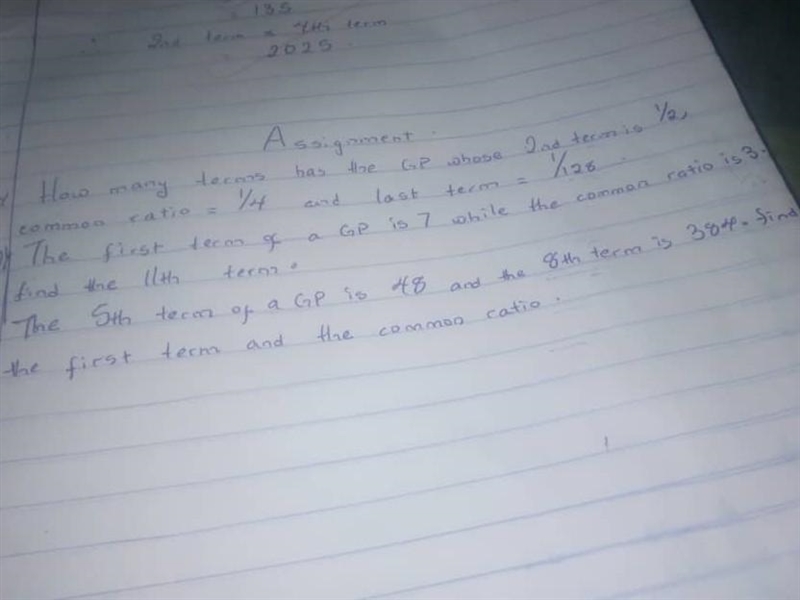 135
2nd term = 4th term
2025
Assignment.
How many terms has the GP whose 2nd term is 1/2,
common ratio = 1/4 and last term = 1/128.
The first term of a GP is 7 while the common ratio is 3.
find the 11th term.
The 5th term of a GP is 48 and the 8th term is 384. find
the first term and the common ratio.